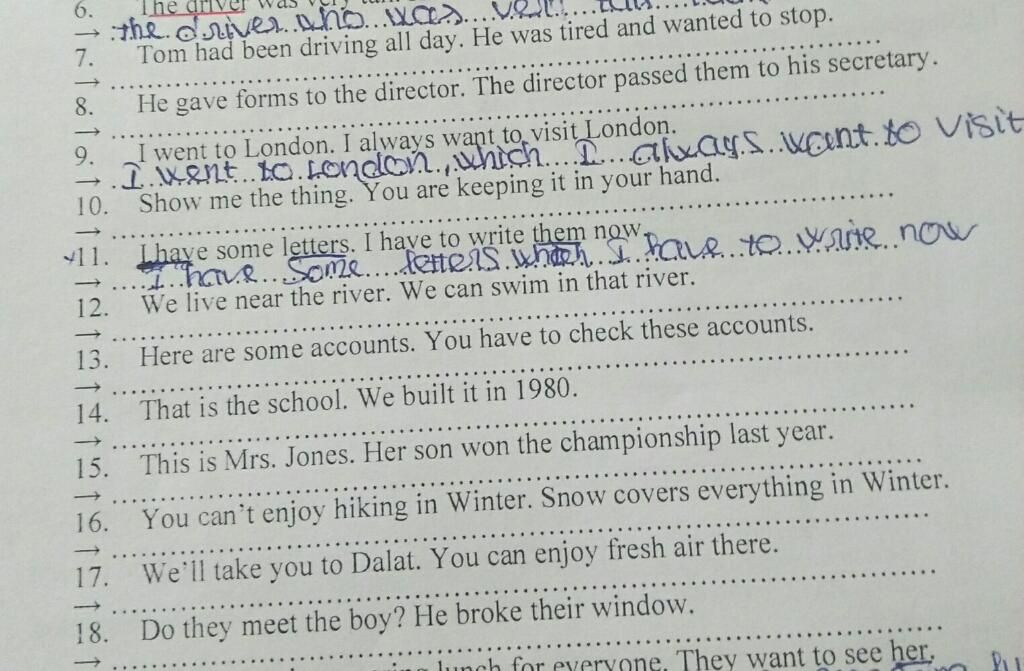 6. The driver was very
→ the driver who was very
7. Tom had been driving all day. He was tired and wanted to stop.
→
8. He gave forms to the director. The director passed them to his secretary.
→
9. I went to London. I always want to visit London.
→ I went to London, which I always want to visit
10. Show me the thing. You are keeping it in your hand.
→
11. I have some letters. I have to write them now.
→ I have some letters which I have to write now
12. We live near the river. We can swim in that river.
→
13. Here are some accounts. You have to check these accounts.
→
14. That is the school. We built it in 1980.
→
15. This is Mrs. Jones. Her son won the championship last year.
→
16. You can't enjoy hiking in Winter. Snow covers everything in Winter.
→
17. We'll take you to Dalat. You can enjoy fresh air there.
→
18. Do they meet the boy? He broke their window.
→
lunch for everyone. They want to see her.